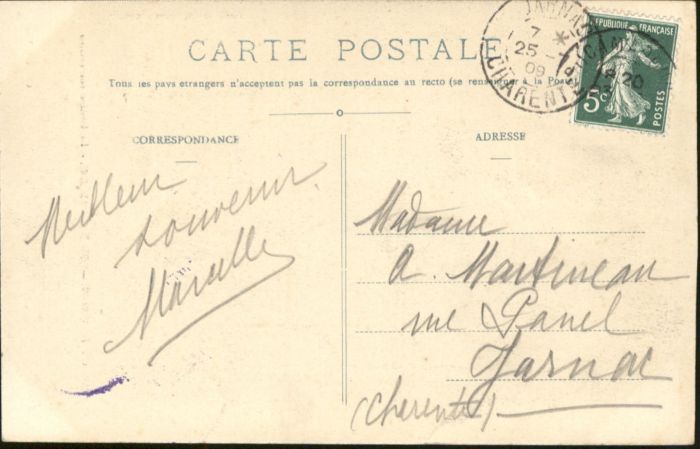 CARTE POSTALE
Tous les pays étrangers n'acceptent pas la correspondance au recto (se renseigner à la Poste)
CORRESPONDANCE
Meilleur
souvenir
Marcelle
ADRESSE
Madame
A. Martineau
rue Panel
Jarnac
(Charente)
JARNAC
7
25 -
09
CHARENTE
REPUBLIQUE FRANÇAISE
5c
POSTES